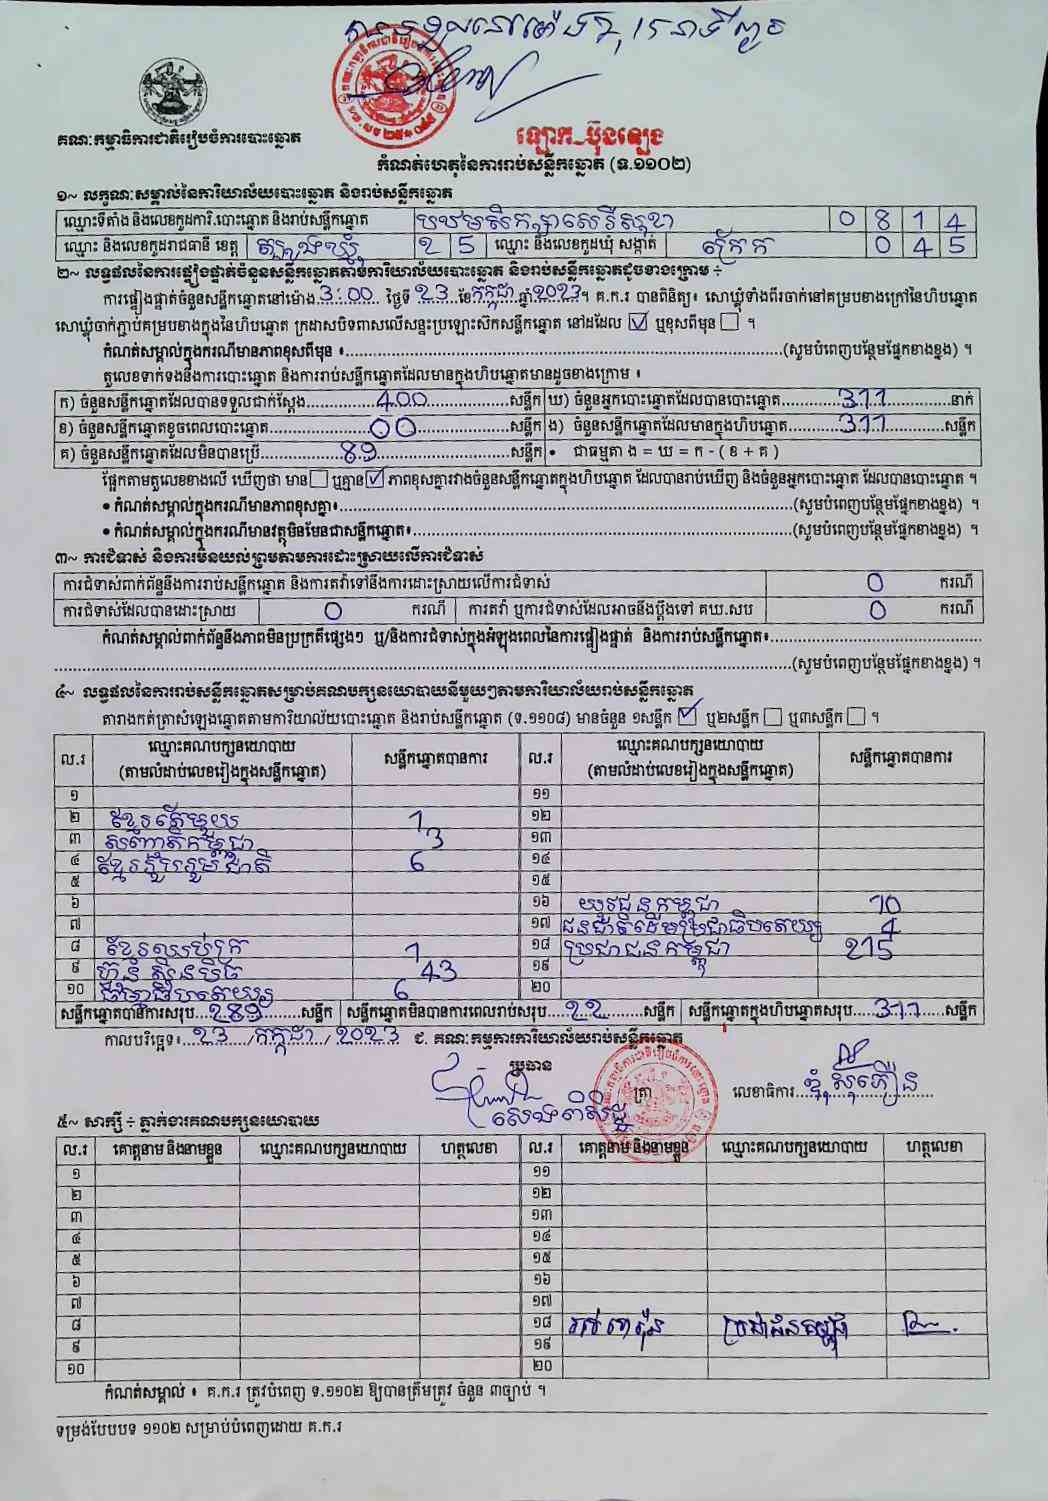 បានទទួលនៅម៉ោង ៖ ១៥ នាទី ល្ងាច
គណៈកម្មាធិការជាតិរៀបចំការបោះឆ្នោត
ឡោក ប៊ុនឡេង
កំណត់ហេតុនៃការរាប់សន្លឹកឆ្នោត (ទ.១១០២)
១~ លក្ខណៈសម្គាល់នៃការិយាល័យបោះឆ្នោត និងរាប់សន្លឹកឆ្នោត
ឈ្មោះទីតាំង និងលេខកូដការិ.បោះឆ្នោត និងរាប់សន្លឹកឆ្នោត បឋមសិក្សាសេរីសុខា 0 8 1 4
ឈ្មោះ និងលេខកូដរាជធានី ខេត្ត ត្បូងឃ្មុំ 2 5 ឈ្មោះ និងលេខកូដឃុំ សង្កាត់ ក្រែក 0 4 5
២~ លទ្ធផលនៃការផ្ទៀងផ្ទាត់ចំនួនសន្លឹកឆ្នោតតាមការិយាល័យបោះឆ្នោត និងរាប់សន្លឹកឆ្នោតដូចខាងក្រោម ÷
ការផ្ទៀងផ្ទាត់ចំនួនសន្លឹកឆ្នោតនៅម៉ោង 3:00 ថ្ងៃទី 23 ខែ កក្កដា ឆ្នាំ 2023 ។ គ.ក.រ បានពិនិត្យ៖ សោឃ្លុំទាំងពីរចាក់នៅគម្របខាងក្រៅនៃហិបឆ្នោត
សោឃ្លុំចាក់ភ្ជាប់គម្របខាងក្នុងនៃហិបឆ្នោត ក្រដាសបិទពាសលើសន្ទះប្រឡោះស៊កសន្លឹកឆ្នោត នៅដដែល ☑ ឬខុសពីមុន ☐ ។
កំណត់សម្គាល់ក្នុងករណីមានភាពខុសពីមុន ៖ (សូមបំពេញបន្ថែមផ្នែកខាងខ្នង) ។
តួលេខទាក់ទងនឹងការបោះឆ្នោត និងការរាប់សន្លឹកឆ្នោតដែលមានក្នុងហិបឆ្នោតមានដូចខាងក្រោម ៖
ក) ចំនួនសន្លឹកឆ្នោតដែលបានទទួលជាក់ស្ដែង 400 សន្លឹក ឃ) ចំនួនអ្នកបោះឆ្នោតដែលបានបោះឆ្នោត 311 នាក់
ខ) ចំនួនសន្លឹកឆ្នោតខូចពេលបោះឆ្នោត 00 សន្លឹក ង) ចំនួនសន្លឹកឆ្នោតដែលមានក្នុងហិបឆ្នោត 311 សន្លឹក
គ) ចំនួនសន្លឹកឆ្នោតដែលមិនបានប្រើ 89 សន្លឹក • ជាធម្មតា ង = ឃ = ក - ( ខ + គ )
ផ្អែកតាមតួលេខខាងលើ ឃើញថា មាន ☐ ឬគ្មាន ☑ ភាពខុសគ្នារវាងចំនួនសន្លឹកឆ្នោតក្នុងហិបឆ្នោត ដែលបានរាប់ឃើញ និងចំនួនអ្នកបោះឆ្នោត ដែលបានបោះឆ្នោត ។
• កំណត់សម្គាល់ក្នុងករណីមានភាពខុសគ្នា៖ (សូមបំពេញបន្ថែមផ្នែកខាងខ្នង) ។
• កំណត់សម្គាល់ក្នុងករណីមានវត្ថុមិនមែនជាសន្លឹកឆ្នោត៖ (សូមបំពេញបន្ថែមផ្នែកខាងខ្នង) ។
៣~ ការជំទាស់ និងការមិនយល់ព្រមតាមការដោះស្រាយលើការជំទាស់
ការជំទាស់ពាក់ព័ន្ធនឹងការរាប់សន្លឹកឆ្នោត និងការតវ៉ាទៅនឹងការដោះស្រាយលើការជំទាស់ 0 ករណី
ការជំទាស់ដែលបានដោះស្រាយ 0 ករណី ការតវ៉ា ឬការជំទាស់ដែលអាចនឹងប្ដឹងទៅ គឃ.សប 0 ករណី
កំណត់សម្គាល់ពាក់ព័ន្ធនឹងភាពមិនប្រក្រតីផ្សេងៗ ឬ/និងការជំទាស់ក្នុងអំឡុងពេលនៃការផ្ទៀងផ្ទាត់ និងការរាប់សន្លឹកឆ្នោត៖
(សូមបំពេញបន្ថែមផ្នែកខាងខ្នង) ។
៤~ លទ្ធផលនៃការរាប់សន្លឹកឆ្នោតសម្រាប់គណបក្សនយោបាយនីមួយៗតាមការិយាល័យរាប់សន្លឹកឆ្នោត
តារាងកត់ត្រាសំឡេងឆ្នោតតាមការិយាល័យបោះឆ្នោត និងរាប់សន្លឹកឆ្នោត (ទ.១១០៨) មានចំនួន ១សន្លឹក ☑ ឬ២សន្លឹក ☐ ឬ៣សន្លឹក ☐ ។
ល.រ ឈ្មោះគណបក្សនយោបាយ សន្លឹកឆ្នោតបានការ ល.រ ឈ្មោះគណបក្សនយោបាយ សន្លឹកឆ្នោតបានការ
(តាមលំដាប់លេខរៀងក្នុងសន្លឹកឆ្នោត) (តាមលំដាប់លេខរៀងក្នុងសន្លឹកឆ្នោត)
១ ១១
២ ខ្មែរតែមួយ 1 ១២
៣ សញ្ជាតិកម្ពុជា 3 ១៣
៤ ខ្មែររួបរួមជាតិ 6 ១៤
៥ ១៥
៦ ១៦ យុវជនកម្ពុជា 10
៧ ១៧ ជនជាតិដើមប្រជាធិបតេយ្យ 4
៨ ខ្មែរឈប់ក្រ 1 ១៨ ប្រជាជនកម្ពុជា 215
៩ ហ៊្វុនស៊ិនប៉ិច 43 ១៩
១០ ធម្មាធិបតេយ្យ 6 ២០
សន្លឹកឆ្នោតបានការសរុប 289 សន្លឹក សន្លឹកឆ្នោតមិនបានការពេលរាប់សរុប 22 សន្លឹក សន្លឹកឆ្នោតក្នុងហិបឆ្នោតសរុប 311 សន្លឹក
កាលបរិច្ឆេទ៖ 23 / កក្កដា / 2023 ជ. គណៈកម្មការការិយាល័យរាប់សន្លឹកឆ្នោត
ប្រធាន
ត្រា លេខាធិការ ខុំ សុភឿន
សេង ពិសិដ្ឋ
៥~ សាក្សី ÷ ភ្នាក់ងារគណបក្សនយោបាយ
ល.រ គោត្តនាម និងនាមខ្លួន ឈ្មោះគណបក្សនយោបាយ ហត្ថលេខា ល.រ គោត្តនាម និងនាមខ្លួន ឈ្មោះគណបក្សនយោបាយ ហត្ថលេខា
១ ១១
២ ១២
៣ ១៣
៤ ១៤
៥ ១៥
៦ ១៦
៧ ១៧
៨ ១៨ ប្រជាជនកម្ពុជា
៩ ១៩
១០ ២០
កំណត់សម្គាល់ ៖ គ.ក.រ ត្រូវបំពេញ ទ.១១០២ ឱ្យបានត្រឹមត្រូវ ចំនួន ៣ច្បាប់ ។
ទម្រង់បែបបទ ១១០២ សម្រាប់បំពេញដោយ គ.ក.រ